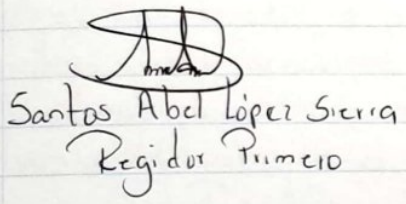 Santos Abel López Sierra
Regidor Primero